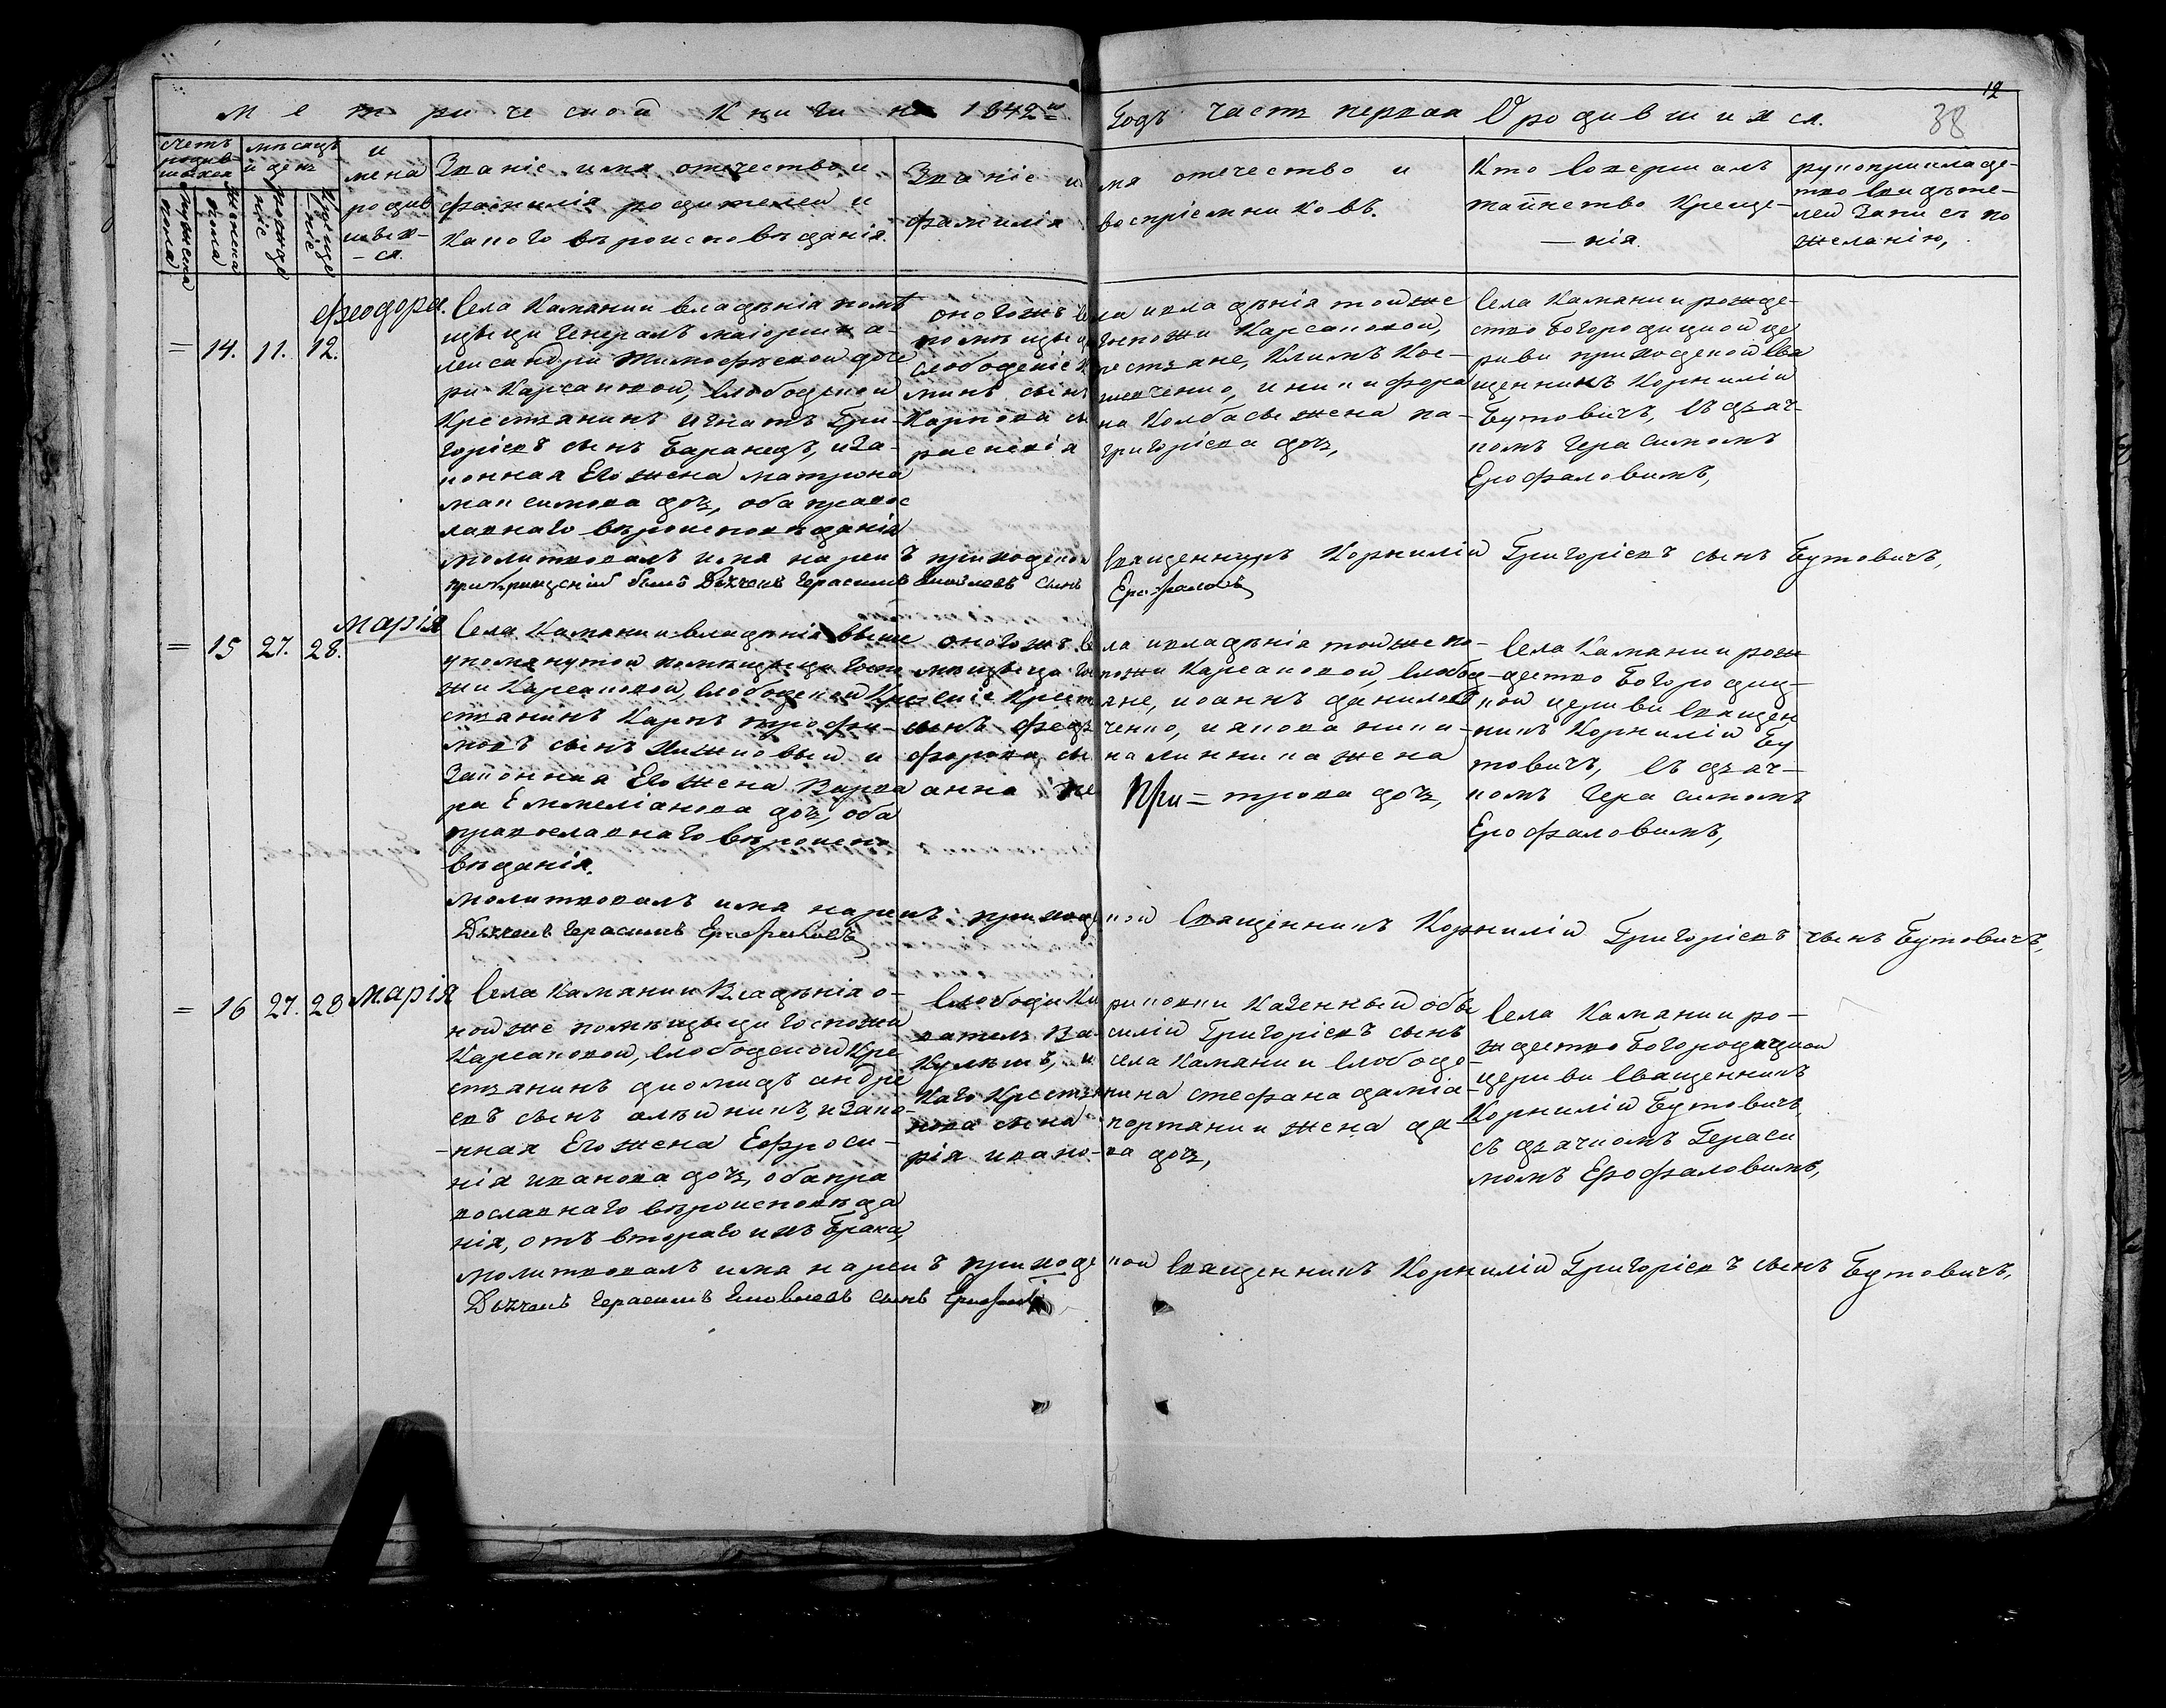 Метрической Книги на 1842й Годъ часть первая О родившихся.
12
38
Счетъ родив-шихся
мѣсяцъ и день
мужеска пола
женска пола
рожденіе
крещеніе
имена родив-шых-ся.
Званіе имя отечество и
фамилія родителей и
какого вѣроисповѣданія.
Званіе имя отечество и
фамилія воспріемниковъ.
Кто Совершалъ
таинство Креще-
нія.
рукоприкладс-
тво свидѣте-
лей Запись по
желанію,
= 14. 11. 12.
Феодора.
Села Камянки владѣнія помѣ
щыци Генералъ маіорши а-
лександри Тимофѣевой доче
ри Карсаковой, Слободской
Крестьянинъ Игнатъ Гри-
горіевъ сынъ Баранецъ, и За-
конная Его жена матрона
максимова дочь, оба правос
лавнаго вѣроисповѣданія
оногожъ села и владѣнія тойже
помѣщыци госпожи Карсаковой,
слободскіе крестьяне, Климъ Кос-
Карпова сына Колбасы жена па-
раскевія григоріева дочь,
Села Камянки рождес-
тво Богородицной це
ркви приходской Свя
щенникъ Корнилій
Бутовичъ, съ дьяч-
комъ Герасимомъ
Ерофаловимъ,
молитвовалъ имя нарекъ приходской Священникъ Корнилій Григоріевъ сынъ Бутовичъ,
при Крещеніи былъ Дьячокъ Герасимъ сынъ Ерофаловъ
= 15 27. 28.
Марія
Села Камянки владѣнія выше
упомянутой помѣщыци госпо
жи Карсаковой, Слободской Кре
стьянинъ Карпъ трофи-
мовъ сынъ и
Законная Его жена Варва
ра Еммеліанова дочь, оба
православнаго вѣроиспо
вѣданія.
оногожъ села и владѣнія тойже по-
мѣщыци госпожи Карсаковой, Слобод-
скіе Крестьяне, иоаннъ даниловъ
форова сына линника жена
анна петрова дочь,
При =
Села Камянки рож
дество Богородиц-
ной церкви Священ
никъ Корнилій Бу
товичъ, съ дьяч-
комъ Герасимомъ
Ерофаловимъ,
молитвовалъ имя нарекъ приходской Священникъ Корнилій Григоріевъ сынъ Бутовичъ,
Дьячокъ Герасимъ Ерофаловъ
= 16 27. 28
Марія
Села Камянки Владѣнія о-
нойже помѣщыци госпожи
Карсаковой, Слободской Кре
стьянинъ диомидъ андре
евъ сынъ олѣйникъ, и Зако-
нная Его жена Ефроси-
нія иванова дочь, оба пра
вославнаго вѣроисповѣда
нія, отъ второго ихъ брака,
силій Григоріевъ сынъ
Кулѣшъ, и села Камянки Слободс-
каго Крестьянина стефана даміа-
нова сына портянки жена да-
рія иванова дочь,
Села Камянки ро-
ждество Богородицной
церкви Священникъ
Корнилій Бутовичъ
съ дьячкомъ Гераси
момъ Ерофаловимъ,
молитвовалъ имя нарекъ приходской Священникъ Корнилій Григоріевъ сынъ Бутовичъ,
Дьячокъ Герасимъ сынъ